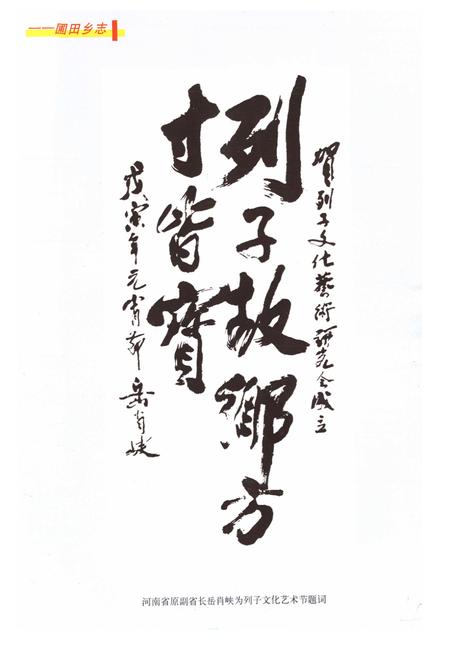 ——圃田乡志
贺列子文化藝術研究会成立
列子故鄉方
寸皆寶
戊寅年元宵節 岳肖峡
河南省原副省长岳肖峡为列子文化艺术节题词